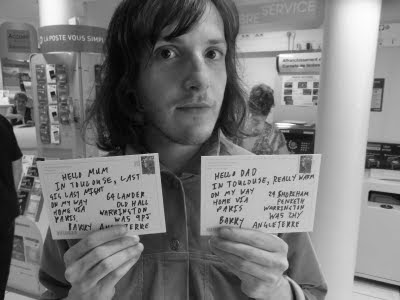 LA POSTE VOUS SIMPLIFIE
BRE SERVICE
HELLO MUM
IN TOULOUSE, LAST
GIG LAST NIGHT
ON MY WAY
HOME VIA
PARIS.
BARRY
64 LANDER
OLD HALL
WARRINGTON
WA5 9PJ
ANGLETERRE
HELLO DAD
IN TOULOUSE, REALLY WARM
ON MY WAY
HOME VIA
PARIS
BARRY
29 SHOREHAM
PENKETH
WARRINGTON
ANGLETERRE